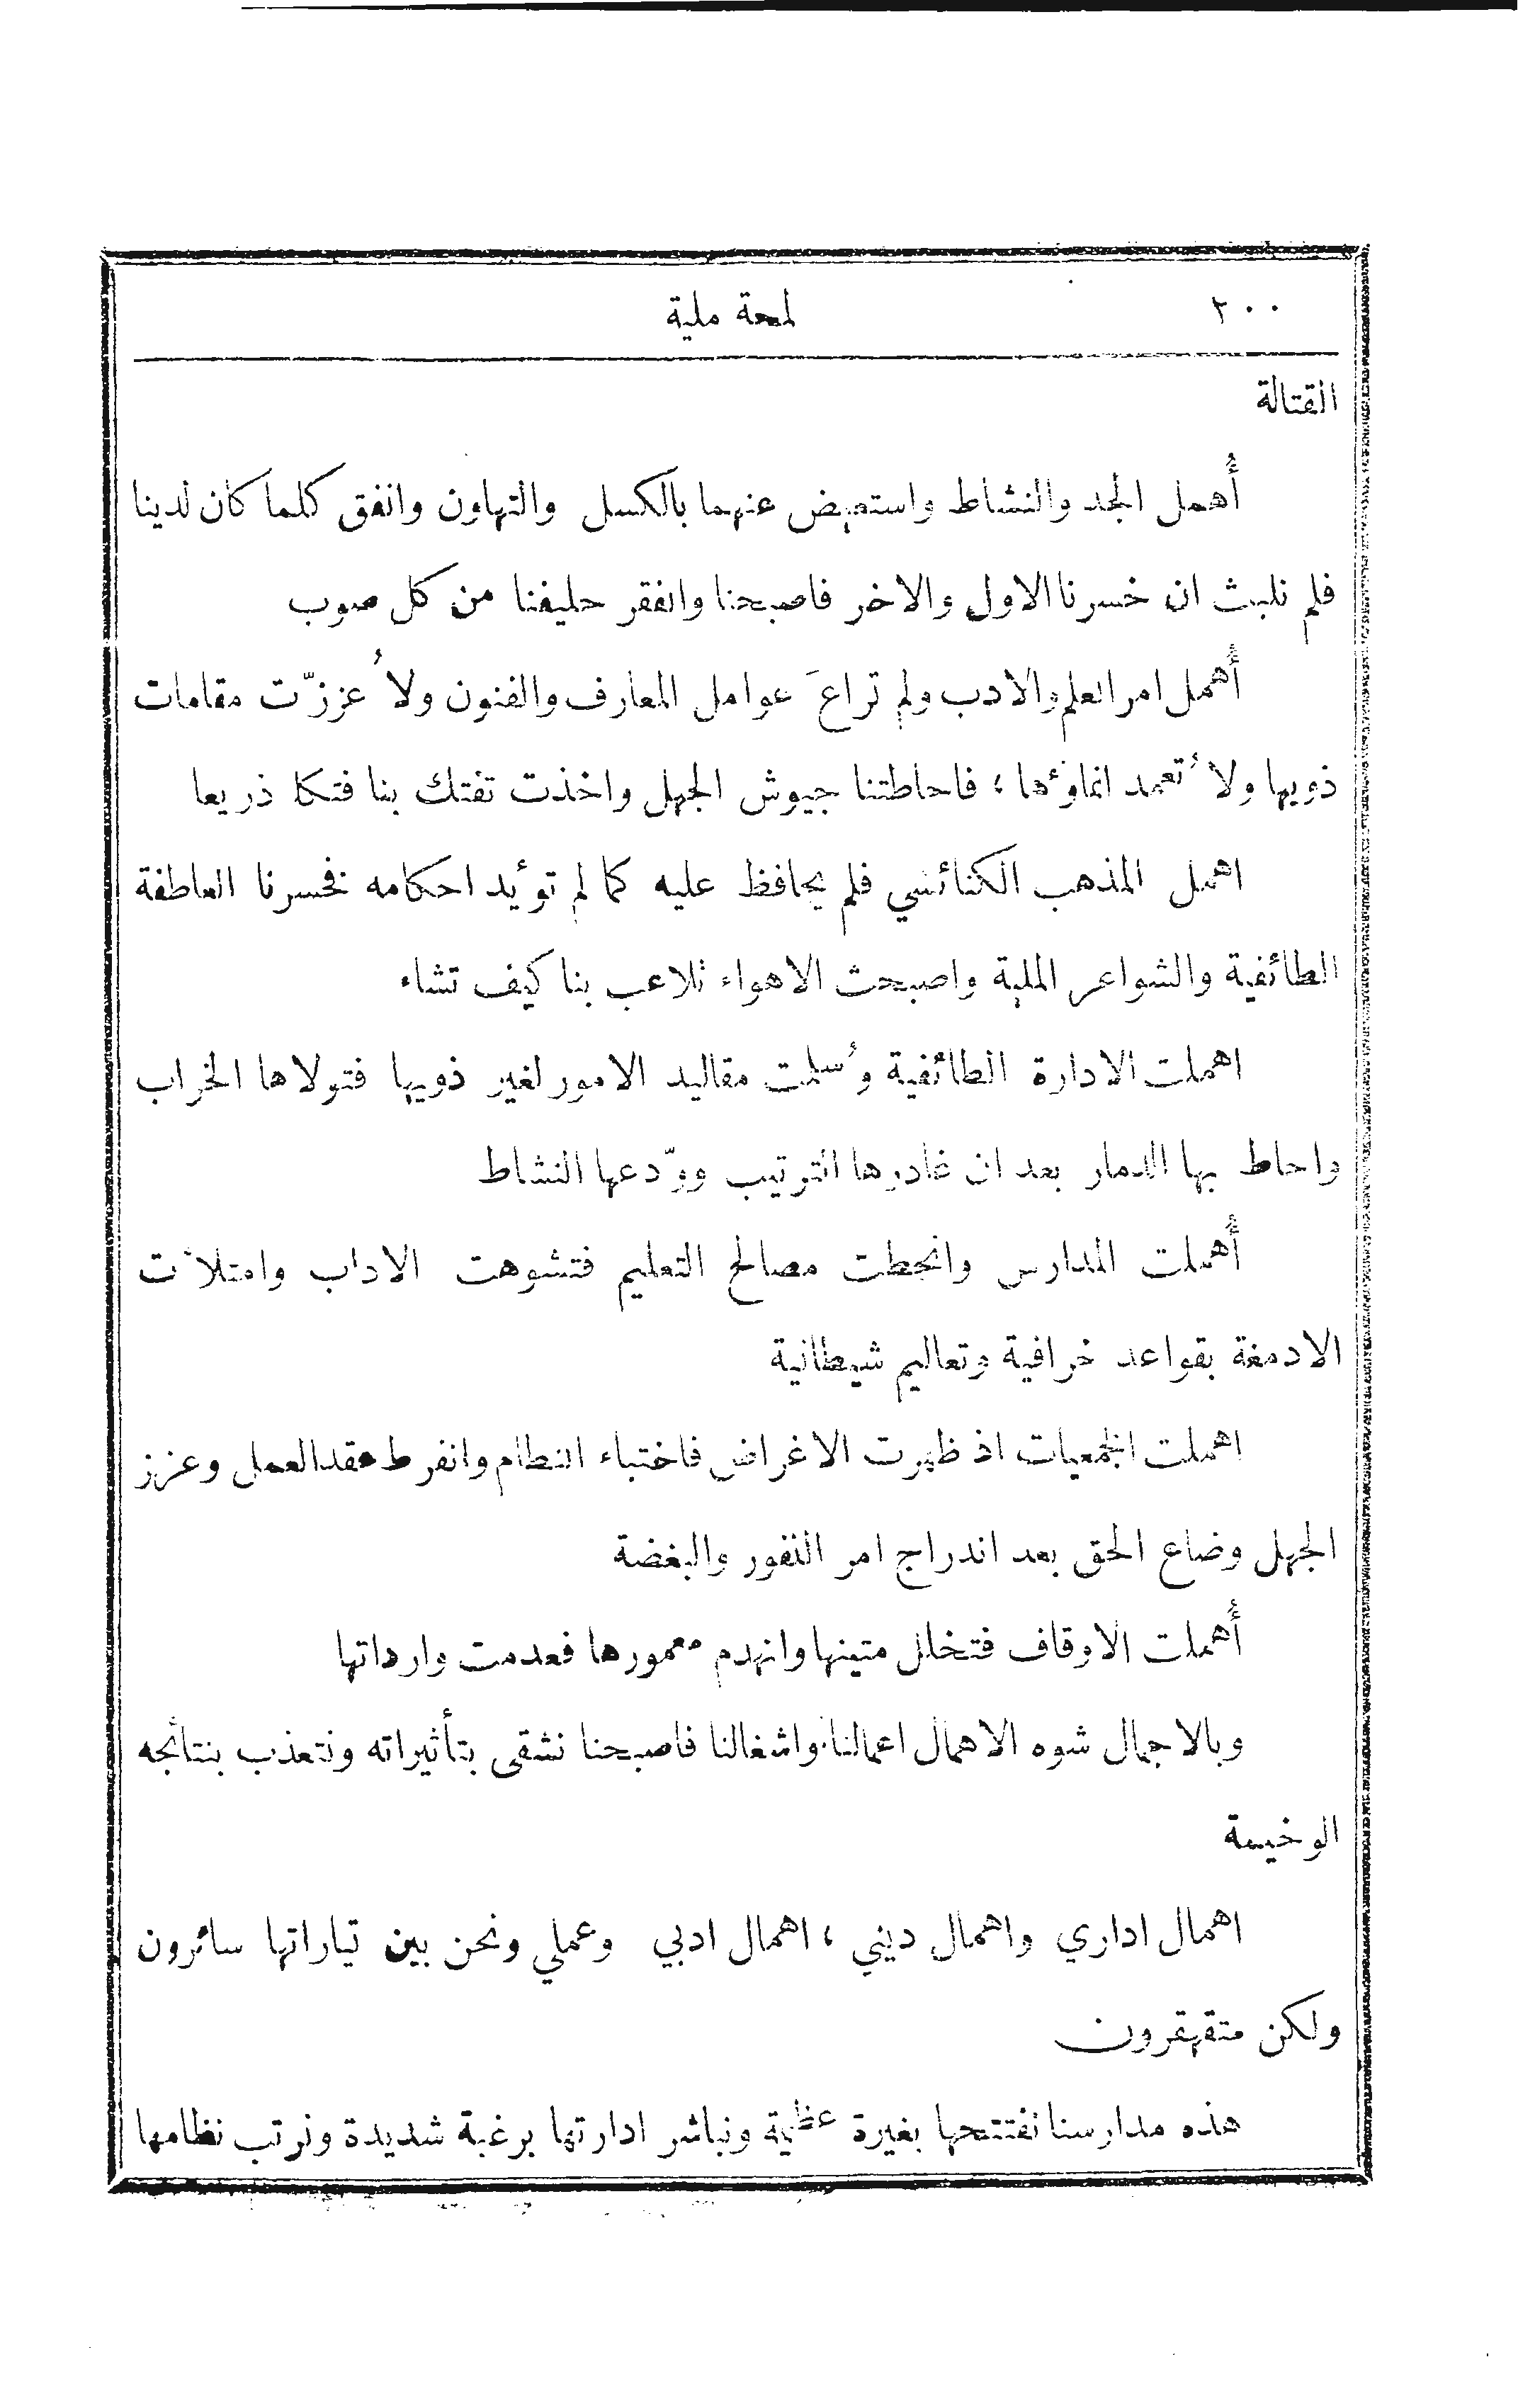 ٢٠٠
لمحة ملية
القتالة
أُهمل الجد والنشاط واستعيض عنهما بالكسل والتهاون وانفق كلما كان لدينا
فلم نلبث ان خسرنا الاول والاخر فاصبحنا وانفقر حليفنا من كل صوب
أُهمل امر العلم والادب ولم تراعَ عوامل المعارف والفنون ولا عُززّت مقامات
ذويها ولا تُعمد انماؤها ؛ فاحاطتنا جيوش الجهل واخذت تفتك بنا فتكا ذريعا
اهمل المذهب الكنائسي فلم يحافظ عليه كما لم توئيد احكامه فخسرنا العاطفة
الطائفية والشواعر الملية واصبحت الاهواء تلاعب بنا كيف تشاء
اهملت الادارة الطائفية وسُلمت مقاليد الامور لغير ذويها فتولاها الخراب
واحاط بها الدمار بعد ان غادرها الترتيب وودّعها النشاط
أُهملت المدارس وانحطت مصالح التعليم فتشوهت الاداب وامتلأت
الادمغة بقواعد خرافية وتعاليم شيطانية
اهملت الجمعيات اذ ظهرت الاغراض فاختباء النظام وانفرط عقد العمل وعزز
الجهل وضاع الحق بعد اندراج امر النفور والبغضة
أُهملت الاوقاف فتخلل متينها وانهدم معمورها فعدمت وارداتها
وبالاجمال شوه الاهمال اعمالنا واشغالنا فاصبحنا نشقى بتأثيراته ونتعذب بنتائجه
الوخيمة
اهمال اداري واهمال ديني ؛ اهمال ادبي وعملي ونحن بين تياراتها سائرون
ولكن متقهقرون
هذه مدارسنا نفتتحها بغيرة عظيمة ونباشر ادارتها برغبة شديدة ونرتب نظامها